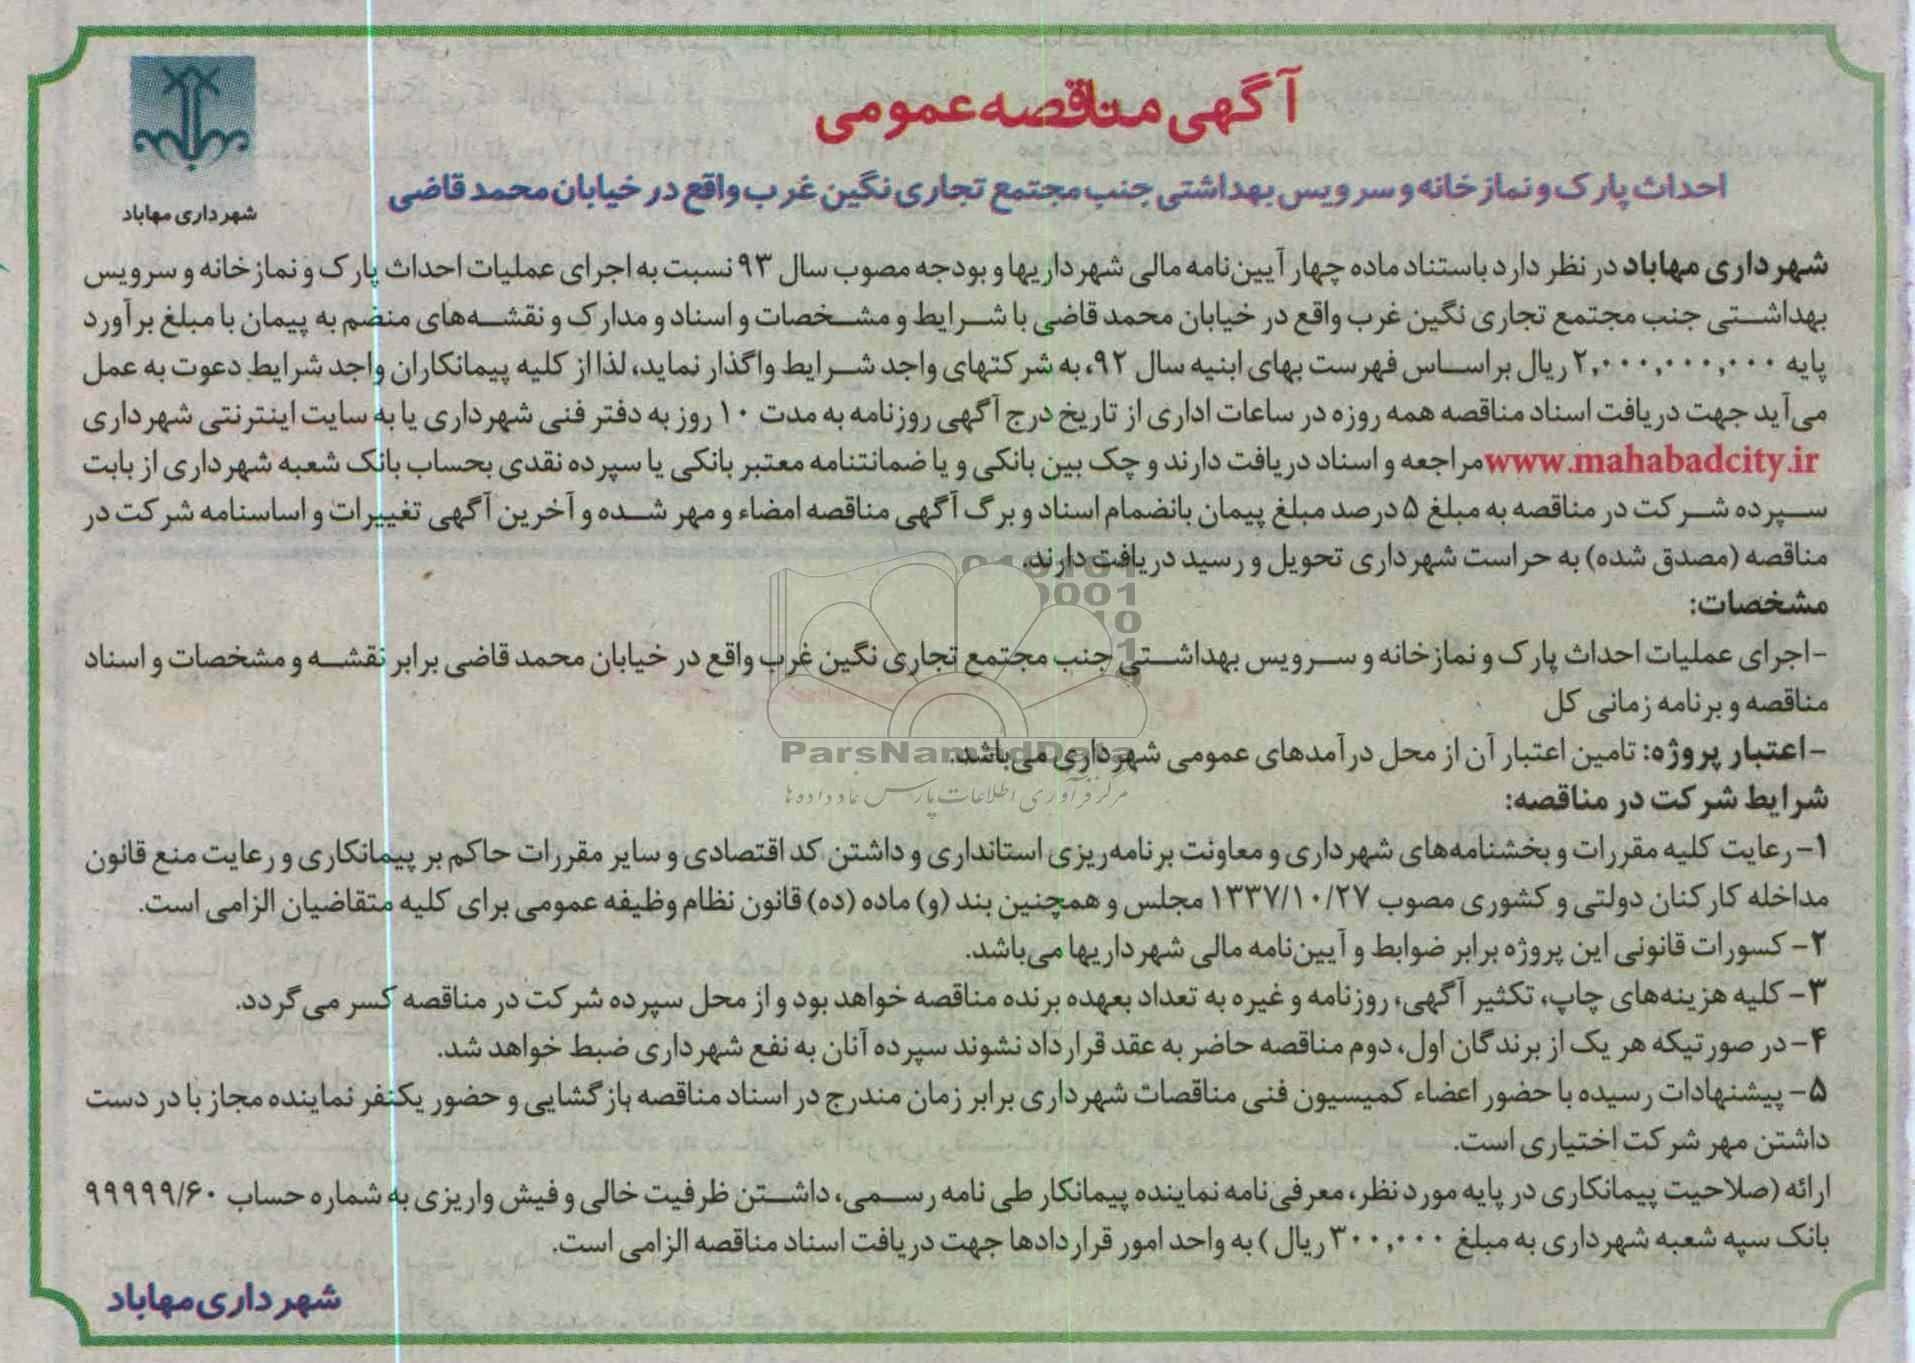 آگهی مناقصه عمومی
احداث پارک و نمازخانه و سرویس بهداشتی جنب مجتمع تجاری نگین غرب واقع در خیابان محمد قاضی
شهرداری مهاباد
شهرداری مهاباد در نظر دارد باستناد ماده چهار آیین‌نامه مالی شهرداریها و بودجه مصوب سال ۹۳ نسبت به اجرای عملیات احداث پارک و نمازخانه و سرویس
بهداشتی جنب مجتمع تجاری نگین غرب واقع در خیابان محمد قاضی با شرایط و مشخصات و اسناد و مدارک و نقشه‌های منضم به پیمان با مبلغ برآورد
پایه ۲,۰۰۰,۰۰۰,۰۰۰ ریال براساس فهرست بهای ابنیه سال ۹۲، به شرکتهای واجد شرایط واگذار نماید، لذا از کلیه پیمانکاران واجد شرایط دعوت به عمل
می‌آید جهت دریافت اسناد مناقصه همه روزه در ساعات اداری از تاریخ درج آگهی روزنامه به مدت ۱۰ روز به دفتر فنی شهرداری یا به سایت اینترنتی شهرداری
www.mahabadcity.ir مراجعه و اسناد دریافت دارند و چک بین بانکی و یا ضمانتنامه معتبر بانکی یا سپرده نقدی بحساب بانک شعبه شهرداری از بابت
سپرده شرکت در مناقصه به مبلغ ۵ درصد مبلغ پیمان بانضمام اسناد و برگ آگهی مناقصه امضاء و مهر شده و آخرین آگهی تغییرات و اساسنامه شرکت در
مناقصه (مصدق شده) به حراست شهرداری تحویل و رسید دریافت دارند.
مشخصات:
-اجرای عملیات احداث پارک و نمازخانه و سرویس بهداشتی جنب مجتمع تجاری نگین غرب واقع در خیابان محمد قاضی برابر نقشه و مشخصات و اسناد
مناقصه و برنامه زمانی کل
-اعتبار پروژه: تامین اعتبار آن از محل درآمدهای عمومی شهرداری می‌باشد.
شرایط شرکت در مناقصه:
۱- رعایت کلیه مقررات و بخشنامه‌های شهرداری و معاونت برنامه‌ریزی استانداری و داشتن کد اقتصادی و سایر مقررات حاکم بر پیمانکاری و رعایت منع قانون
مداخله کارکنان دولتی و کشوری مصوب ۱۳۳۷/۱۰/۲۷ مجلس و همچنین بند (و) ماده (ده) قانون نظام وظیفه عمومی برای کلیه متقاضیان الزامی است.
۲- کسورات قانونی این پروژه برابر ضوابط و آیین‌نامه مالی شهرداریها می‌باشد.
۳- کلیه هزینه‌های چاپ، تکثیر آگهی، روزنامه و غیره به تعداد بعهده برنده مناقصه خواهد بود و از محل سپرده شرکت در مناقصه کسر می‌گردد.
۴- در صورتیکه هر یک از برندگان اول، دوم مناقصه حاضر به عقد قرارداد نشوند سپرده آنان به نفع شهرداری ضبط خواهد شد.
۵- پیشنهادات رسیده با حضور اعضاء کمیسیون فنی مناقصات شهرداری برابر زمان مندرج در اسناد مناقصه بازگشایی و حضور یکنفر نماینده مجاز با در دست
داشتن مهر شرکت اختیاری است.
ارائه (صلاحیت پیمانکاری در پایه مورد نظر، معرفی‌نامه نماینده پیمانکار طی نامه رسمی، داشتن ظرفیت خالی و فیش واریزی به شماره حساب ۹۹۹۹۹/۶۰
بانک سپه شعبه شهرداری به مبلغ ۳۰۰,۰۰۰ ریال) به واحد امور قراردادها جهت دریافت اسناد مناقصه الزامی است.
شهرداری مهاباد
ParsNamadData
مرکز فرآوری اطلاعات پارس نماد داده‌ها